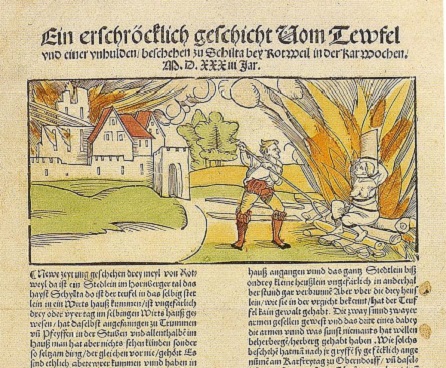 Ein erschröcklich geschicht Vom Tewfel
vnd einer vnhulden / beschehen zu Schilta bey Rotweil in der Karwochen.
M. D. XXXiii Jar.
¶ Newe zeytung geschehen drey meyl von Rot
weyl da ist ein Stedlein im hornberger tal das
hayst Schylta do ist der teufel in das selbig stet
lein in ein Wirts hauß kummen / ist vngefarlich
drey oder vyer tag im selbingen Wirts hauß ge
wesen / hat daselbst angefangen zu Trummen
vñ Pfeyffen in der Stuben vnd allenthalbē im
hauß man hat aber nichts sehen kinden sonder
so seltzam ding / der gleichen vor nie / gehört Es
sind etlich abenteurer kummen vnnd haben in
hauß angangen vnnd das gantz Stedtlein biß
on drey kleine heußlein vngefarlich in anderhal
ber stund gar verbrunnē Aber vber die drey heuß
lein / wie sie in der vrgicht bekennt / hat der Teuf
fel kain gewalt gehabt. Die zway sind zwayer
armen gesellen gewest vnd das drit eines dabey
die armen vmd was sunst niemants hat wellen
beherbergē / herberg gehabt haben. Wie solchs
beschehē hat man nach jr gryffē sy gefēcklich ange
nūmē am Karfreytag zu Oberndorff / vñ dasel-